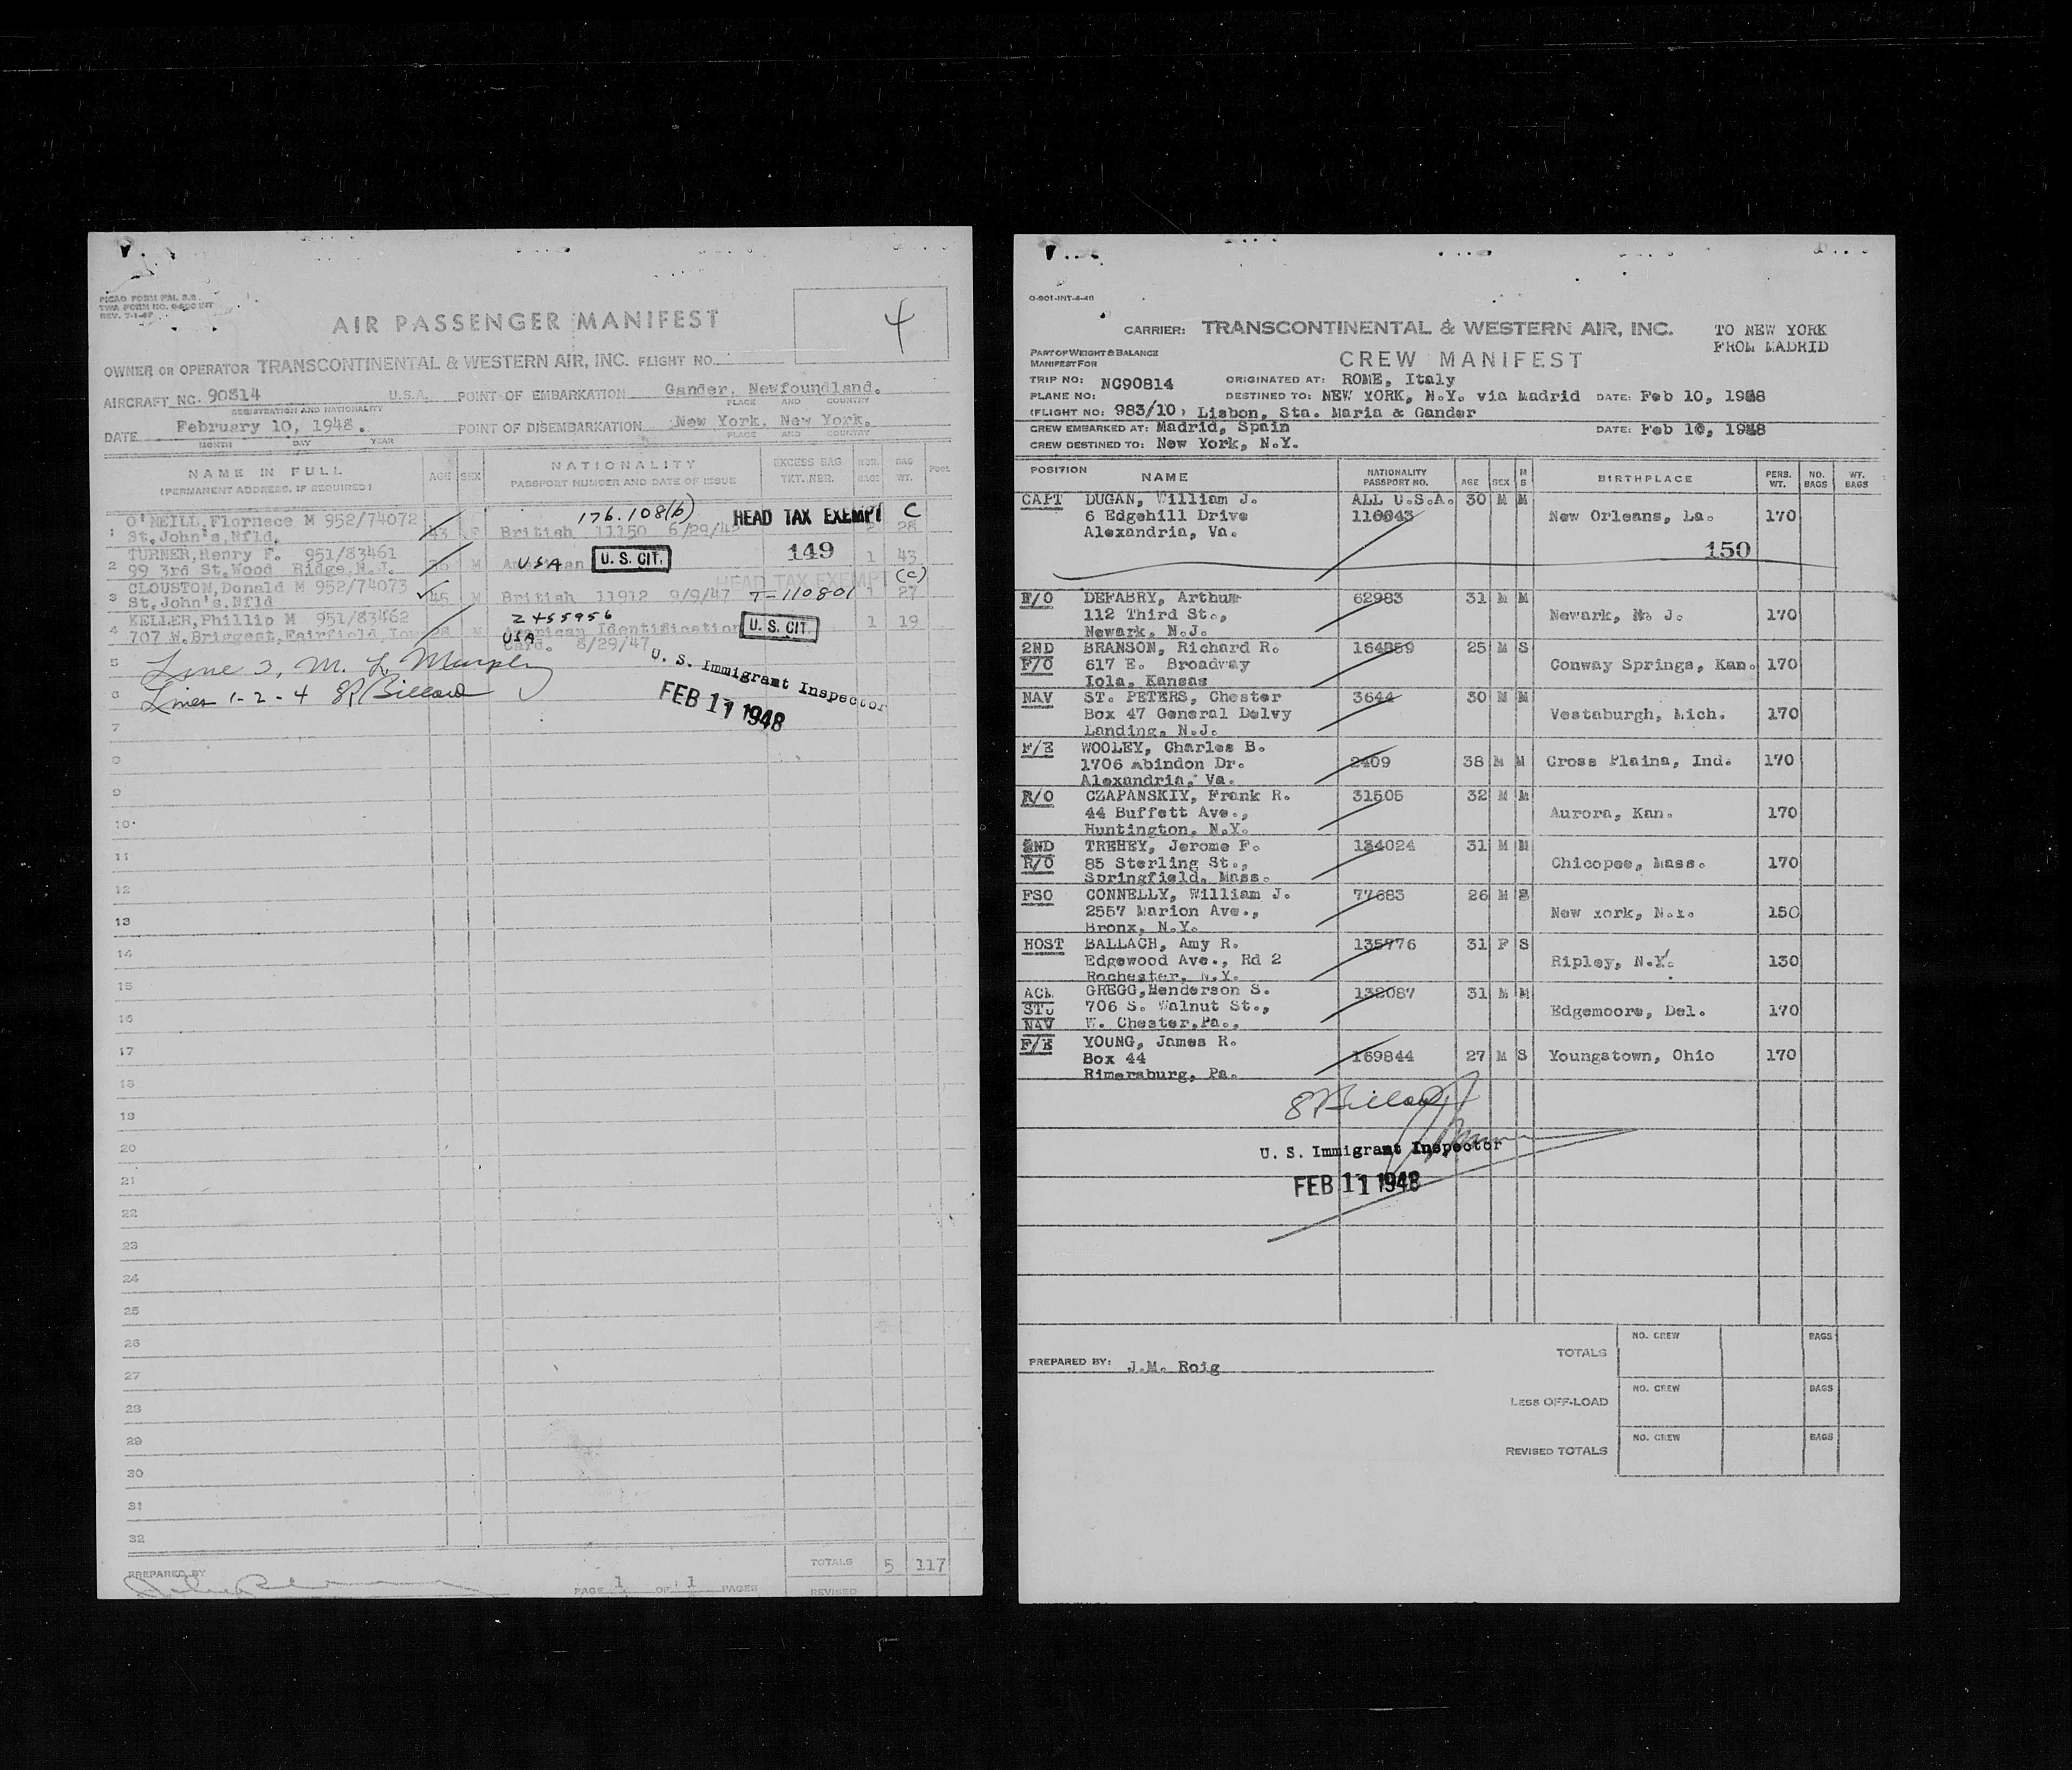 PICAO FORM FAL 2.2.
TWA FORM NO. 0-900 INT
REV. 7-1-47
AIR PASSENGER MANIFEST
4
OWNER OR OPERATOR TRANSCONTINENTAL & WESTERN AIR, INC. FLIGHT NO.
AIRCRAFT NC. 90814 U.S.A. POINT OF EMBARKATION Gander, Newfoundland.
REGISTRATION AND NATIONALITY PLACE AND COUNTRY
DATE February 10, 1948. POINT OF DISEMBARKATION New York, New York.
MONTH DAY YEAR PLACE AND COUNTRY
NAME IN FULL AGE SEX NATIONALITY EXCESS BAG BAG
(PERMANENT ADDRESS, IF REQUIRED) PASSPORT NUMBER AND DATE OF ISSUE TKT. NBR. BAGS WT.
176.108(b) HEAD TAX EXEMPT C
1 O'NEILL, Flornece M 952/74072 43 F British 11150 2 28
St. John's, Nfld.
2 TURNER, Henry F. 951/83461 M American USA U. S. CIT. 149 1 43
99 3rd St, Wood Ridge N.J.
HEAD TAX EXEMPT (c)
3 CLOUSTON, Donald M 952/74073 45 M British 11912 9/9/47 T-110801 1 27
St. John's, Nfld
4 KELLER, Phillip M 951/83462 2455956 U. S. CIT. 1 19
707 W. Briggest, Fairfield, Iow USA American Identification
Card. 8/29/47
5 Line 3, M. L. Murphy
6 Lines 1-2-4 Billard
U. S. Immigrant Inspector
FEB 11 1948
7
8
9
10
11
12
13
14
15
16
17
18
19
20
21
22
23
24
25
26
27
28
29
30
31
32
TOTALS 5 117
PREPARED BY
PAGE 1 OF 1 PAGES REVISED
0-901-INT-4-46
CARRIER: TRANSCONTINENTAL & WESTERN AIR, INC. TO NEW YORK
FROM MADRID
PART OF WEIGHT & BALANCE
MANIFEST FOR
CREW MANIFEST
TRIP NO: NC90814 ORIGINATED AT: ROME, Italy
PLANE NO: DESTINED TO: NEW YORK, N.Y. via Madrid DATE: Feb 10, 1948
(FLIGHT NO: 983/10) Lisbon, Sta. Maria & Gander
CREW EMBARKED AT: Madrid, Spain DATE: Feb 10, 1948
CREW DESTINED TO: New York, N.Y.
POSITION NAME NATIONALITY PASSPORT NO. AGE SEX M S BIRTHPLACE PERS. WT. NO. BAGS WT. BAGS
CAPT DUGAN, William J. ALL U.S.A. 30 M M
6 Edgehill Drive 110043 New Orleans, La. 170
Alexandria, Va.
150
F/O DEFABRY, Arthur 62983 31 M M
112 Third St., Newark, N. J. 170
Newark, N.J.
2ND BRANSON, Richard R. 164859 25 M S
F/O 617 E. Broadway Conway Springs, Kan. 170
Iola, Kansas
NAV ST. PETERS, Chester 3644 30 M M
Box 47 General Delvy Vestaburgh, Mich. 170
Landing, N.J.
F/E WOOLEY, Charles B.
1706 Abindon Dr. 2409 38 M M Cross Plains, Ind. 170
Alexandria, Va.
R/O CZAPANSKIY, Frank R. 31505 32 M M
44 Buffett Ave., Aurora, Kan. 170
Huntington, N.Y.
2ND TREHEY, Jerome F. 134024 31 M M
R/O 85 Sterling St., Chicopee, Mass. 170
Springfield, Mass.
FSO CONNELLY, William J. 77683 26 M S
2557 Marion Ave., New York, N.Y. 150
Bronx, N.Y.
HOST BALLACH, Amy R. 135776 31 F S
Edgewood Ave., Rd 2 Ripley, N.Y. 130
Rochester, N.Y.
ACM GREGG, Henderson S. 132087 31 M M
STU 706 S. Walnut St., Edgemoore, Del. 170
NAV W. Chester, Pa.,
F/E YOUNG, James R.
Box 44 169844 27 M S Youngstown, Ohio 170
Rimersburg, Pa.
Billard
U. S. Immigrant Inspector
FEB 11 1948
NO. CREW BAGS
TOTALS
PREPARED BY: J.M. Roig
NO. CREW BAGS
LESS OFF-LOAD
NO. CREW BAGS
REVISED TOTALS